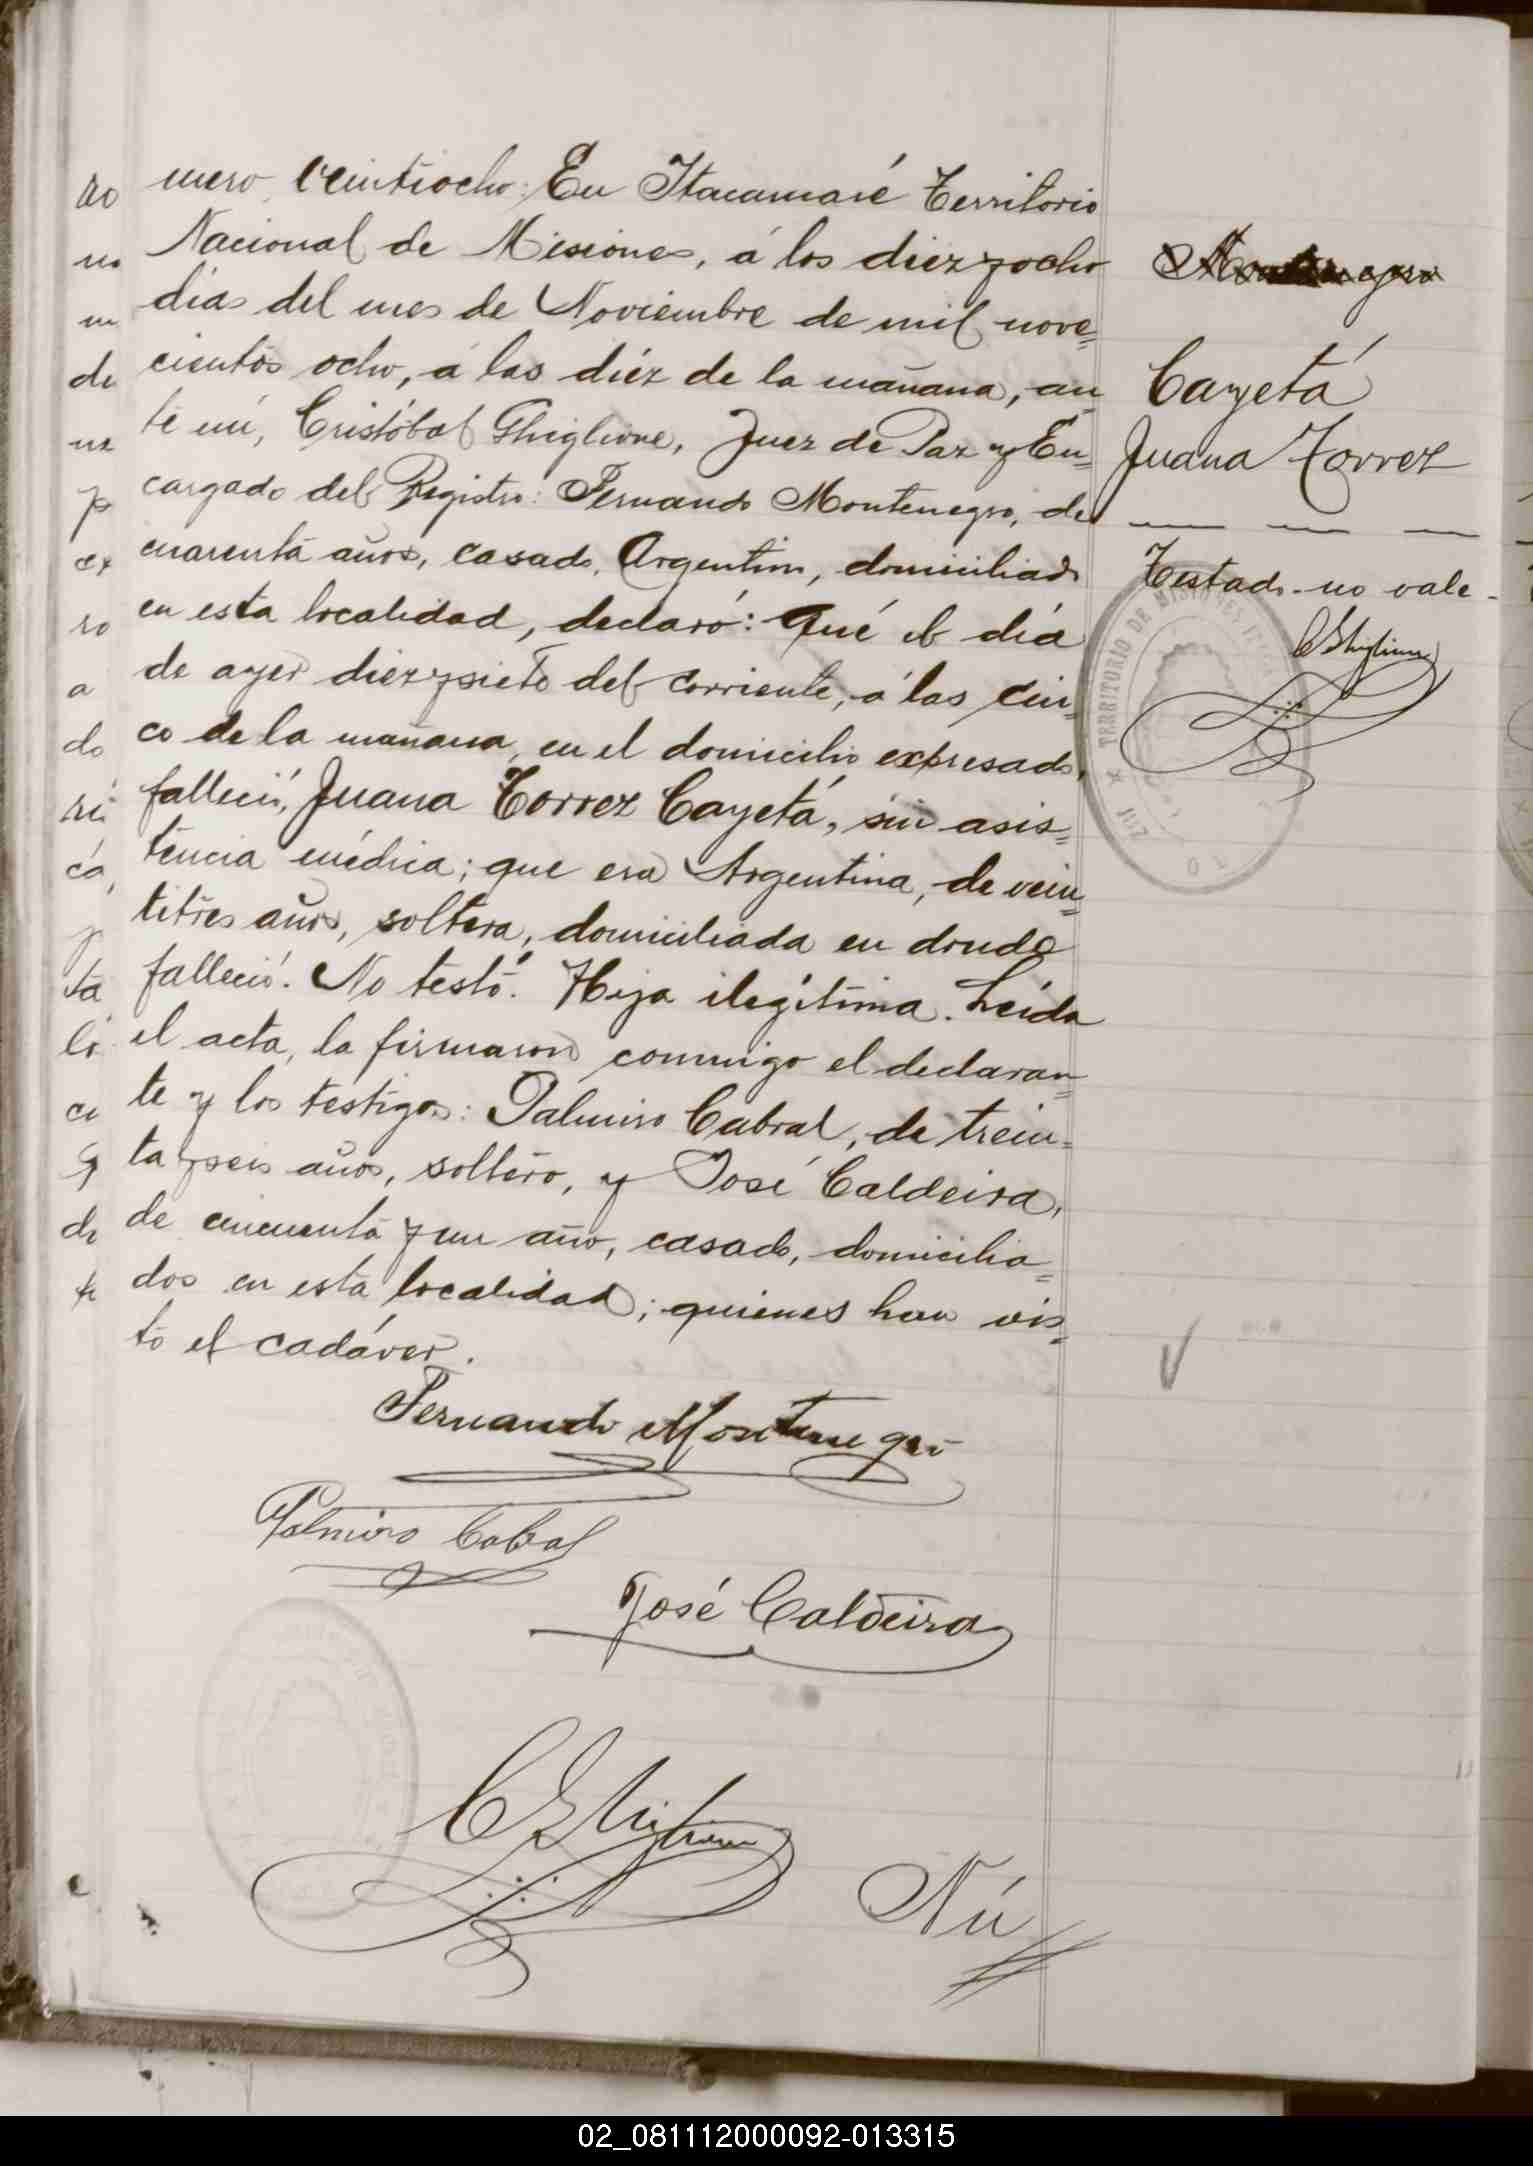 mero veintiocho: En Itacaruaré Territorio
Nacional de Misiones, á los diez y ocho
dias del mes de Noviembre de mil nove=
cientos ocho, á las diéz de la mañana, an
te mí, Cristóbal Ghiglione, Juez de Paz y En=
cargado del Registro: Fernando Montenegro, de
cuarenta años, casado, Argentino, domiciliado
en esta localidad, declaró: Qué el día
de ayer diez y siete del corriente, á las cin=
co de la mañana, en el domicilio expresado,
falleció, Juana Torrez Cayetá, sin asis=
tencia médica; que era Argentina, de vein=
titres años, soltera, domiciliada en donde
falleció. No testó. Hija ilegítima. Leída
el acta, la firmaron conmigo el declaran=
te y los testigos: Palmiro Cabral, de trein=
ta y seis años, soltero, y José Caldeira,
de cincuenta y un año, casado, domicilia=
dos en esta localidad; quienes han vis=
to el cadáver.
Fernando Montenegro
Palmiro Cabral
José Caldeira
CGhiglione
Nú
Montenegro
Cayetá
Juana Torrez
Testado no vale-
CGhiglione
TERRITORIO DE MISIONES
ro
no
m
de
p
so
a
do
ta
li
ce
de
02_081112000092-013315